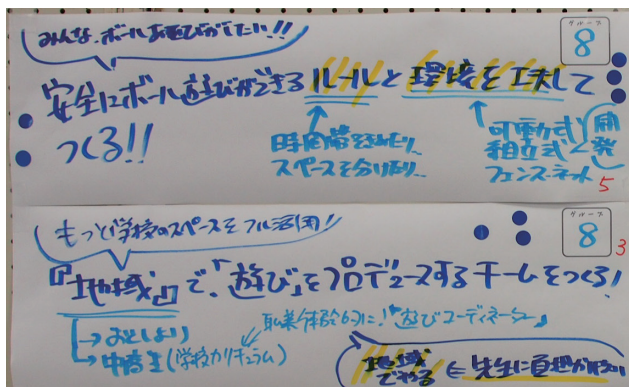 みんな、ボールあそびがしたい!!
グループ
8
安全にボール遊びができるルールと環境を工夫して
つくる!!
時間帯を決めたり、
スペースを分けたり、
可動式
組立式
フェンス・ネット
開発
5
もっと学校のスペースをフル活用!
グループ
8
3
『地域』で、「遊び」をプロデュースするチームをつくる!
→おとしより
→中高生(学校カリキュラム)
職業体験の1つに!「遊びコーディネーター」
地域でやる ⇐ 先生に負担かけない